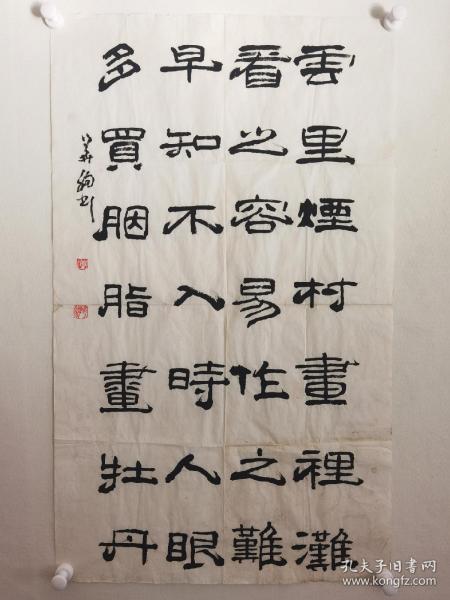 雲里煙村畫裡灘
看之容易作之難
早知不入時人眼
多買胭脂畫牡丹
孔夫子旧书网
www.kongfz.com